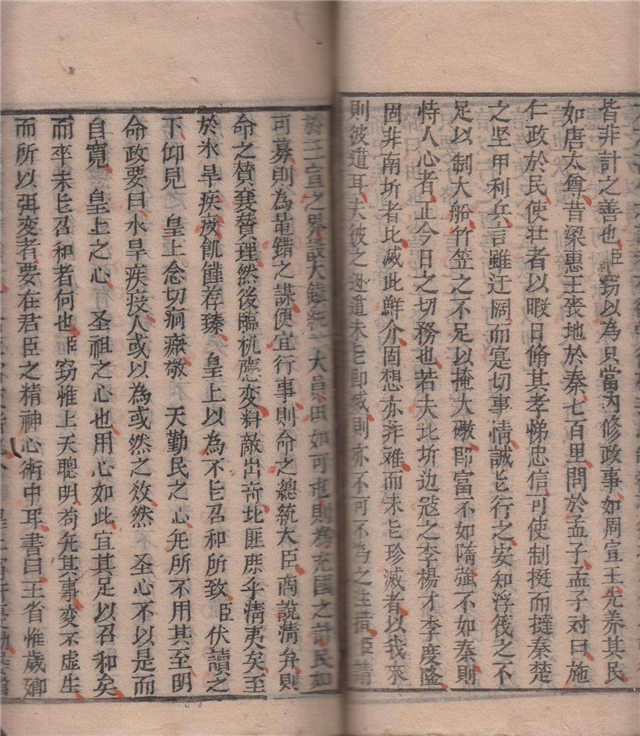 皆非計之善也臣窃以為只當內修政事如周宣王先养其民
如唐太尊昔梁惠王丧地於秦七百里問於孟子孟子对曰施
仁政於民使壮者以暇日脩其孝悌忠信可使制挺而撻秦楚
之坚甲利兵言雖迂阔而寔切事情誠能行之安知浮筏之不
足以制大船竹笠之不足以掩大礟即富不如隋强不如秦則
恃人心者正今日之切務也若夫北圻边寇之李楊才李度隆
固非南圻者比滅此鮮介固想亦非难而未能殄滅者以我來
則彼遁耳夫彼之迯遁未能即滅則亦不可不為之
於三宣之界設大鎮統一大員田如可屯則為充國之計民如
可募則為晁錯之謀便宜行事則命之總統大臣商說清弁則
命之賛襄賛理然後臨机應变料敵出奇北匪庶乎清夷矣至
於水旱疾疫飢饉荐臻 皇上以為不能召和所致臣伏讀之
下仰見 皇上念切痌瘝敬 天勤民之心无所不用其至明
命政要曰水旱疾疫人或以為或然之效然 圣心不以是而
自寬 皇上之心 圣祖之心也用心如此宜其足以召和矣
而卒未能召和者何也臣窃惟上天聰明苟无其事变不虛生
而所以弭变者要在君臣之精神心術中耳書曰王省惟歲卿